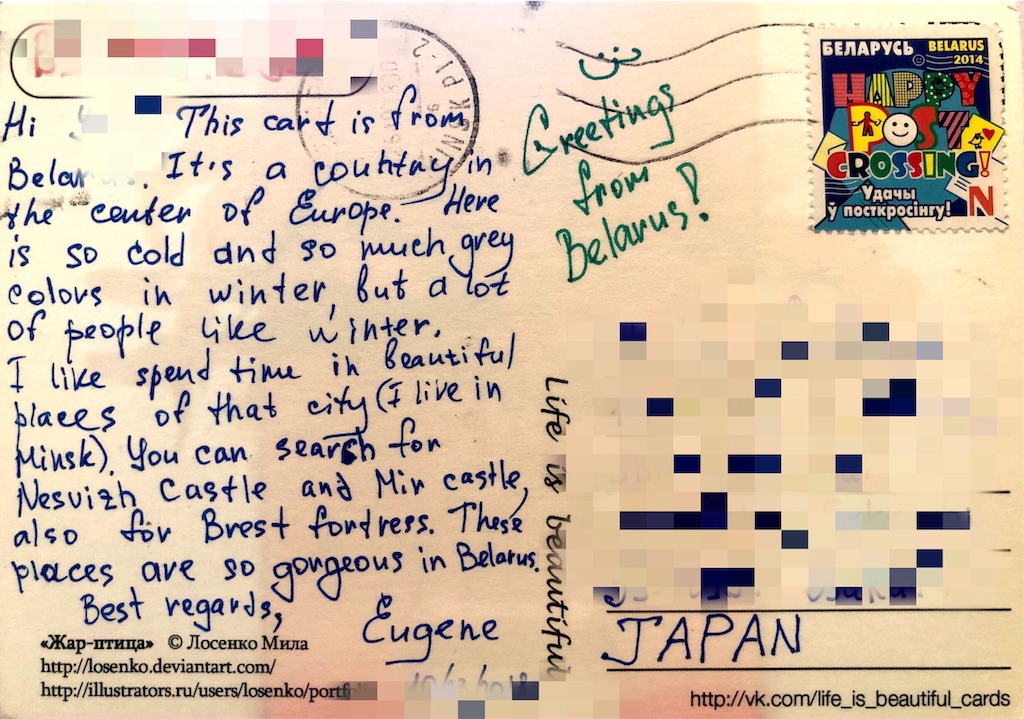 Hi This card is from
Belarus. It's a country in
the center of Europe. Here
is so cold and so much grey
colors in winter, but a lot
of people like winter.
I like spend time in beautiful
places of that city (I live in
Minsk). You can search for
Nesvizh Castle and Mir castle,
also for Brest fortress. These
places are so gorgeous in Belarus.
Best regards,
Eugene
«Жар-птица» © Лосенко Мила
http://losenko.deviantart.com/
http://illustrators.ru/users/losenko/portf
Life is beautiful
Greetings
from
Belarus!
БЕЛАРУСЬ BELARUS
2014
HAPPY
POST
CROSSING!
Удачы
ў посткросінгу! N
JAPAN
http://vk.com/life_is_beautiful_cards